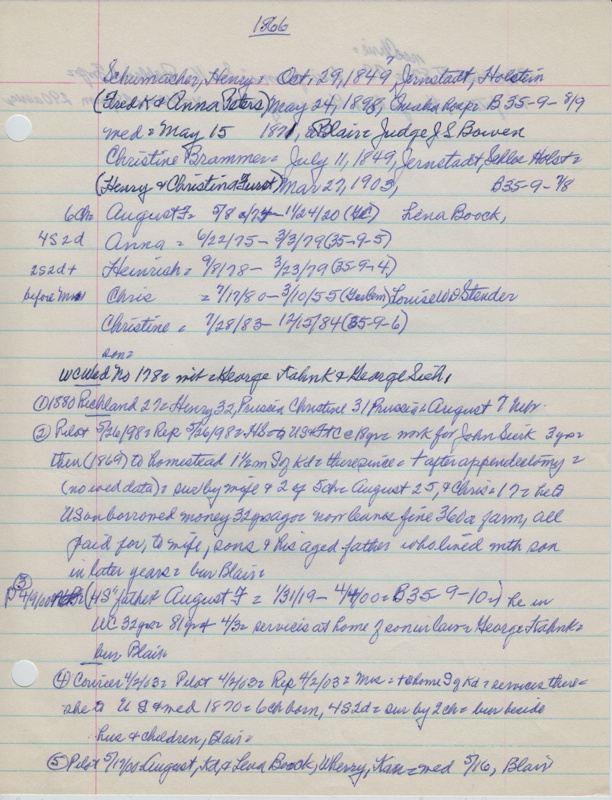 1866
Schumacher, Henry = Oct, 29, 1849, Jernstadt, Holstein
(Fred K & Anna Peters) May 24, 1898, Omaha B 35-9-8/9
med = May 15 1871, Blair = Judge J S Bowen
Christine Brammer = July 11, 1849, Jernstadt, Holst =
(Henry & Christina Furst) Mar 27, 1903, B35-9-7/8
6Ch = August F = 5/8 - 1/24/20 Lena Boock,
4S2d Anna = 6/22/75 - 3/3/79 (35-9-5)
2S2d+ Heinrich = 9/8/78 - 3/23/79 (35-9-4)
before Chris = 7/17/80 - 3/10/55 Louise W D Stender
Christine = 7/28/83 - 12/15/84 (35-9-6)
son =
WCWed No 178 = wit = George Kahnk & George Sieh,
① 1880 Richland 27 = Henry 32, Prussia, Christine 31, Prussia & August 7 Nebr.
② Pilot 5/26/98 = Rep 5/26/98 = to US = work for John Sierk 3 yrs =
then (1869) to homestead 1½ m S of Kd = there since = + after appendectomy =
(no wed data) = sur by wife & 2 of 5ch = August 25, & Chris = 17 = he to
US on borrowed money 32 yrs ago = now leaves fine 360a farm, all
paid for, to wife, sons & his aged father who lived with son
in later years = bur Blair =
③ P 4/9/00 father August F = 1/31/19 - 4/4/00 = B35-9-10 =) he in
WC 32 yrs = 81 yrs + 4/3 = services at home of son in law = George Kahnk =
bur Blair
④ Courier 4/2/03 = Pilot 4/2/03 = Rep 4/2/03 = Mrs = + at home S of Kd = services there =
she to U S & med 1870 = 6 ch born, 4S2d = sur by 2 ch = bur beside
hus & children, Blair =
⑤ Pilot 5/17/00 August, Kd, & Lena Boock, Wherry, Kan = med 5/16, Blair